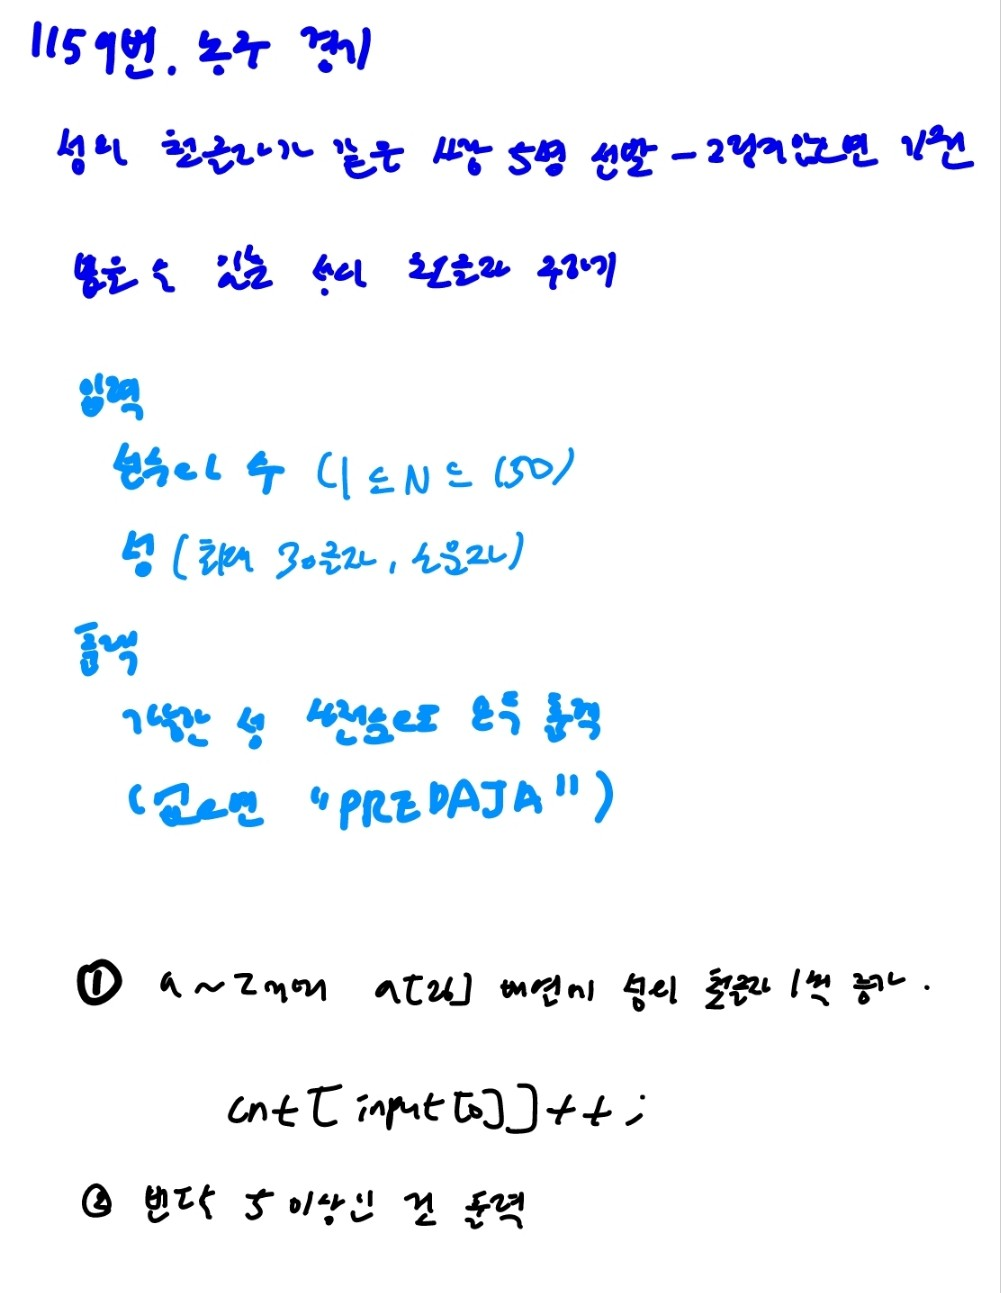 1159번. 농구 경기
성의 첫글자가 같은 사람 5명 선발 - 그렇지않으면 기권
뽑을 수 있는 성의 첫글자 구하기
입력
선수의 수 (1 ≤ N ≤ 150)
성 (최대 30글자, 소문자)
출력
가능한 성 사전순으로 모두 출력
(없으면 "PREDAJA")
① a ~ z a[26] 배열에 성의 첫글자 1씩 증가.
cnt[input[0]]++;
② 5 이상인 것 출력